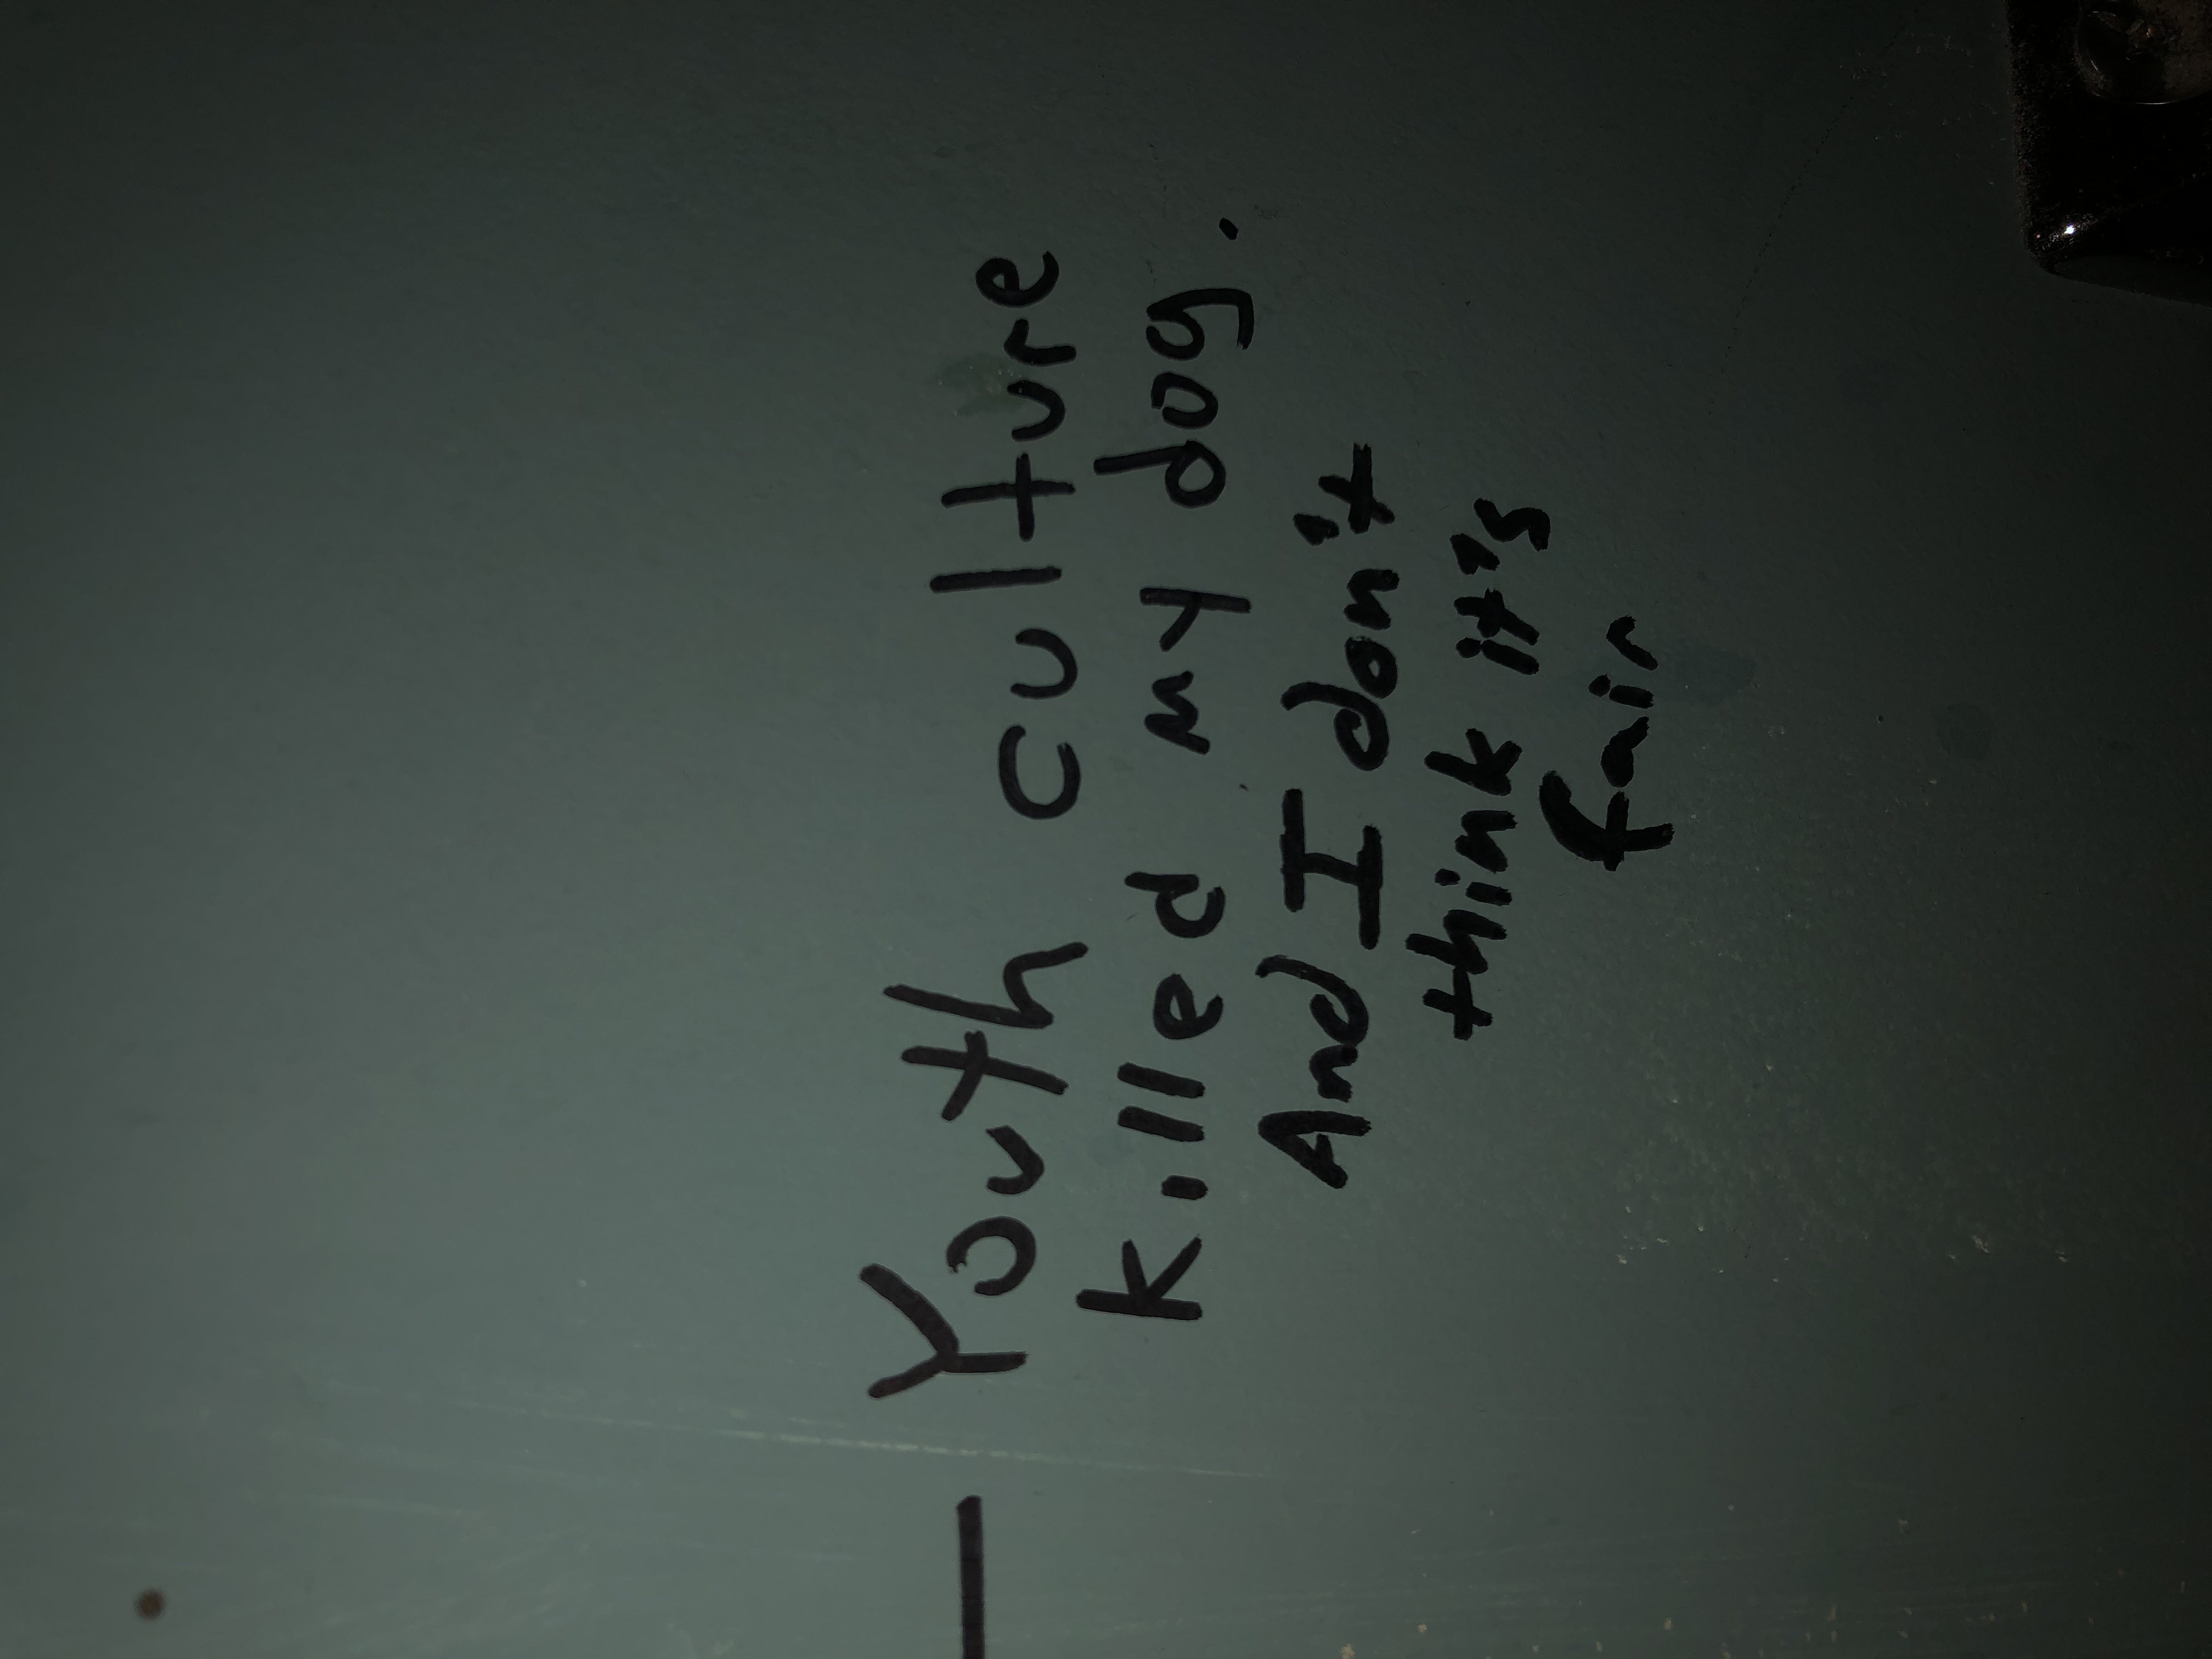 — Youth culture
killed my dog.
And I don't
think it's
fair